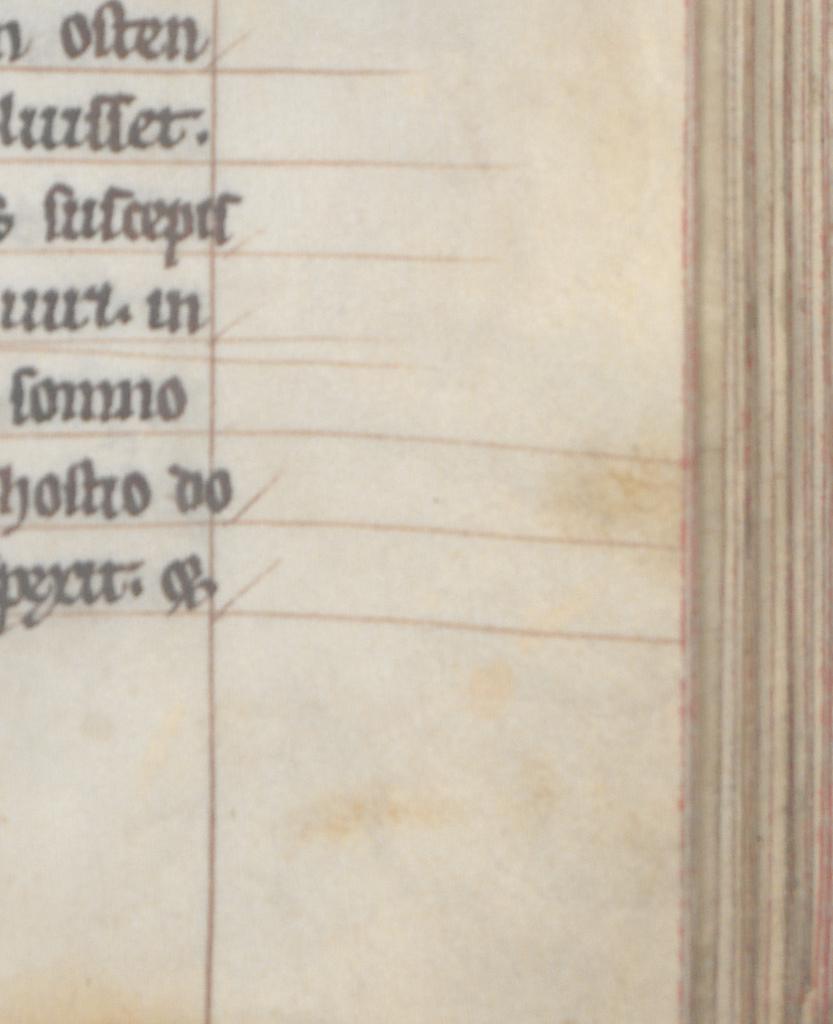 n osten
luisset.
suscepis
in
somno
hostio do
perit. &